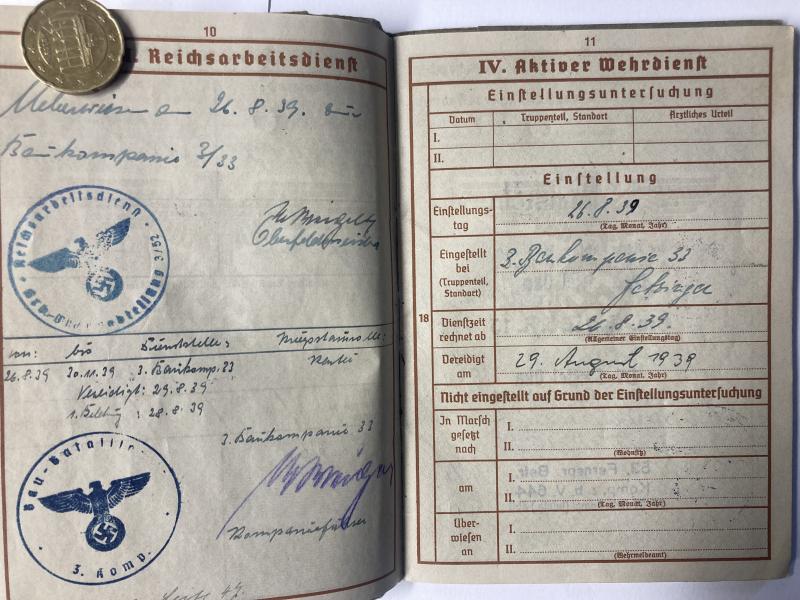 10
Reichsarbeitsdienst
Ueberwiesen am 26.8.39. zur
Baukompanie 3/33
Reichsarbeitsdienst
3/52
Oberfeldmeister
von: bis Dienststelle:
26.8.39 30.11.39 3. Baukomp. 33
Vereidigt: 29.8.39
28.8.39
3. Baukompanie 33
Bau-Bataillon
3. Komp.
Kompanieführer
11
IV. Aktiver Wehrdienst
Einstellungsuntersuchung
Datum Truppenteil, Standort Ärztliches Urteil
I.
II.
Einstellung
Einstellungs-
tag 26.8.39
(Tag, Monat, Jahr)
Eingestellt
bei 3. Baukompanie 33
(Truppenteil,
Standort)
18 Dienstzeit
rechnet ab 26.8.39.
(Allgemeiner Einstellungstag)
Vereidigt
am 29. August 1939
(Tag, Monat, Jahr)
Nicht eingestellt auf Grund der Einstellungsuntersuchung
In Marsch
gesetzt
nach
I.
II.
(Wohnsitz)
am
I.
II.
(Tag, Monat, Jahr)
Über-
wiesen
an
I.
II.
(Wehrmeldeamt)